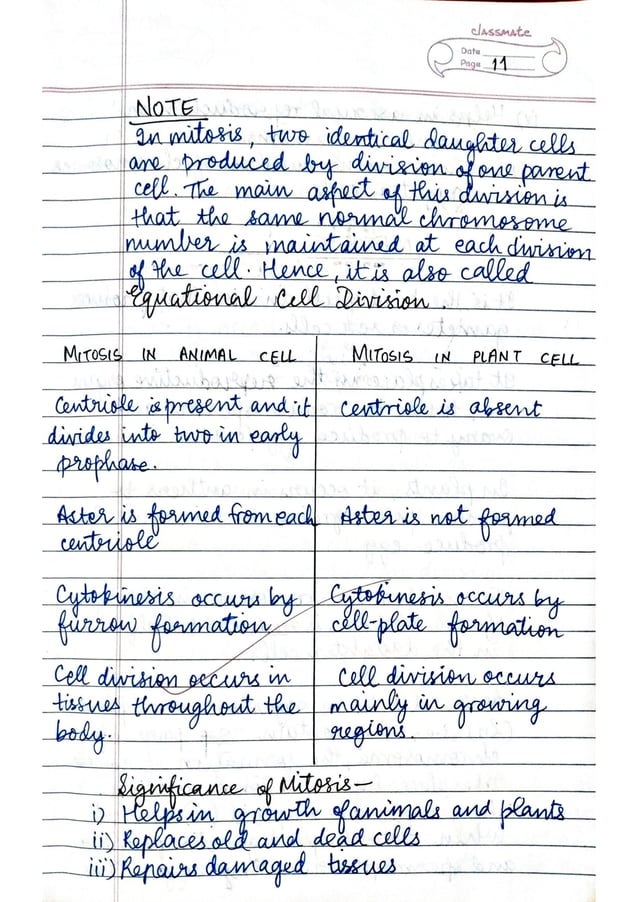 classmate
Date
Page 11
NOTE
In mitosis, two identical daughter cells
are produced by division of one parent
cell. The main aspect of this division is
that the same normal chromosome
number is maintained at each division
of the cell. Hence, it is also called
Equational Cell Division
MITOSIS IN ANIMAL CELL
MITOSIS IN PLANT CELL
Centriole is present and it
divides into two in early
prophase.
Centriole is absent
Aster is formed from each
centriole
Aster is not formed
Cytokinesis occurs by
furrow formation
Cytokinesis occurs by
cell-plate formation
Cell division occurs in
tissues throughout the
body.
Cell division occurs
mainly in growing
regions.
Significance of Mitosis-
i) Helps in growth of animals and plants
ii) Replaces old and dead cells
iii) Repairs damaged tissues